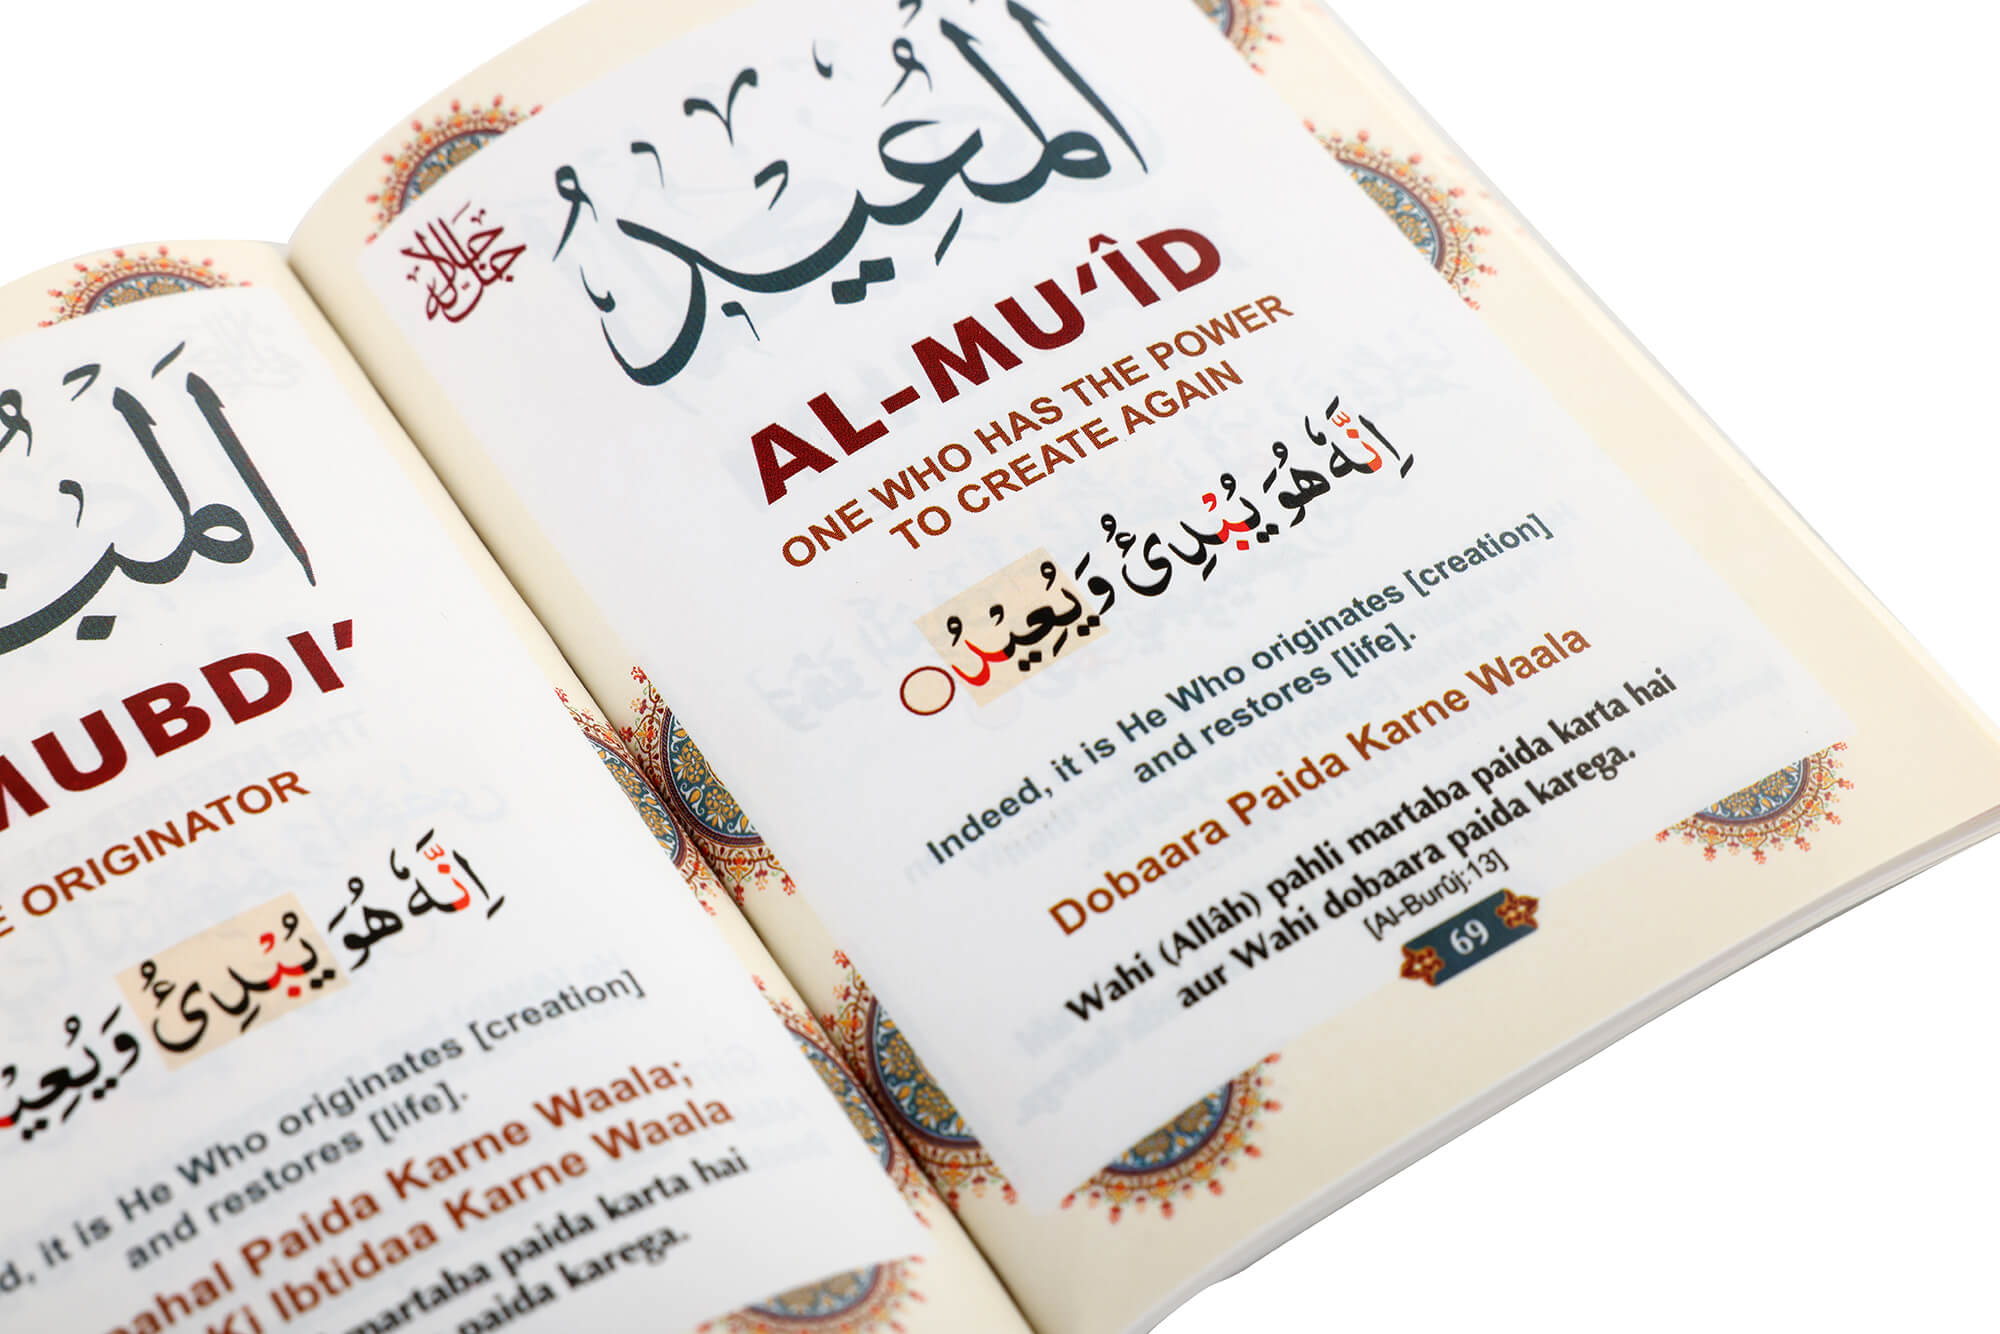 MUBDI’
ORIGINATOR
اِنَّهٗ هُوَ يُبْدِئُ
originates [creation]
it is He Who
and restores [life].
Paida Karne Waala;
Ki Ibtidaa Karne Waala
martaba paida karta hai
paida karega.
اَلْمُعِيْدُ
جل جلاله
AL-MU‘ÎD
ONE WHO HAS THE POWER
TO CREATE AGAIN
اِنَّهٗ هُوَ يُبْدِئُ وَيُعِيْدُ
Indeed, it is He Who originates [creation]
and restores [life].
Dobaara Paida Karne Waala
Wahi (Allâh) pahli martaba paida karta hai
aur Wahi dobaara paida karega.
[Al-Burûj:13]
69